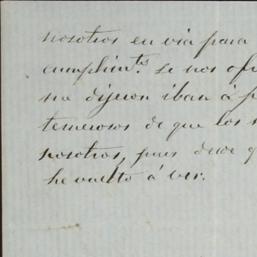 nosotros en via para
cumplimts. se nos ofr
na dijeron iban á p
temerosos de que los
nosotros, pues dice q
he vuelto á ver.